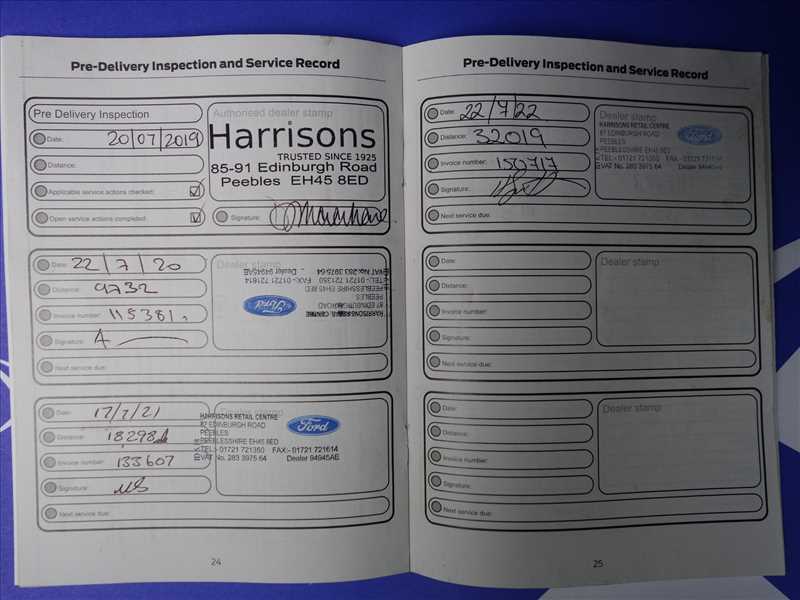 Pre-Delivery Inspection and Service Record
Pre Delivery Inspection
Date: 20/07/2019
Distance:
Applicable service actions checked:
Open service actions completed:
Authorised dealer stamp
Harrisons
TRUSTED SINCE 1925
85-91 Edinburgh Road
Peebles EH45 8ED
Signature:
Date: 22/7/20
Distance: 9732
Invoice number: 115381.
Signature:
Next service due:
Dealer stamp
HARRISONS RETAIL CENTRE
87 EDINBURGH ROAD
PEEBLES
PEEBLESSHIRE EH45 8ED
TEL:- 01721 721350 FAX:- 01721 721614
VAT No. 283 3975 64 Dealer 94945AE
Ford
Date: 17/7/21
Distance: 18298
Invoice number: 133607
Signature:
Next service due:
HARRISONS RETAIL CENTRE
87 EDINBURGH ROAD
PEEBLES
PEEBLESSHIRE EH45 8ED
TEL:- 01721 721350 FAX:- 01721 721614
VAT No. 283 3975 64 Dealer 94945AE
Ford
24
Pre-Delivery Inspection and Service Record
Date: 22/7/22
Distance: 32019
Invoice number: 150717
Signature:
Next service due:
Dealer stamp
HARRISONS RETAIL CENTRE
87 EDINBURGH ROAD
PEEBLES
PEEBLESSHIRE EH45 8ED
TEL:- 01721 721350 FAX:- 01721 721614
VAT No. 283 3975 64 Dealer 94945AE
Ford
Date:
Distance:
Invoice number:
Signature:
Next service due:
Dealer stamp
Date:
Distance:
Invoice number:
Signature:
Next service due:
Dealer stamp
25